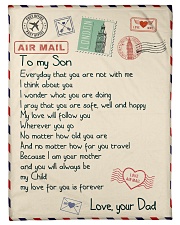 AIR MAIL
To my Son
Everyday that you are not with me
I think about you
I wonder what you are doing
I pray that you are safe, well and happy
My love will follow you
Wherever you go
No matter how old you are
And no matter how far you travel
Because I am your mother
and you will always be
my Child
my love for you is forever
Love, your Dad